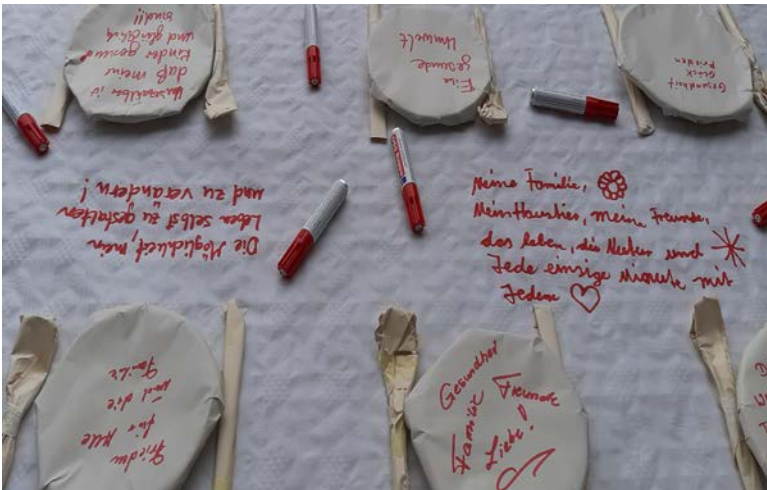 Unbezahlbar ist
daß meine
Kinder gesund
und glücklich
sind!!
Eine
gesunde
Umwelt
Gesundheit
Glück
Frieden
Die Möglichkeit, mein
Leben selbst zu gestalten
und zu verändern!
Meine Familie,
Mein Haustier, meine Freunde,
das leben, die Natur und
Jede einzige minute mit
Jedem
Frieden
für Alle
und die
Familie
Gesundheit
Familie
Freunde
Liebe!